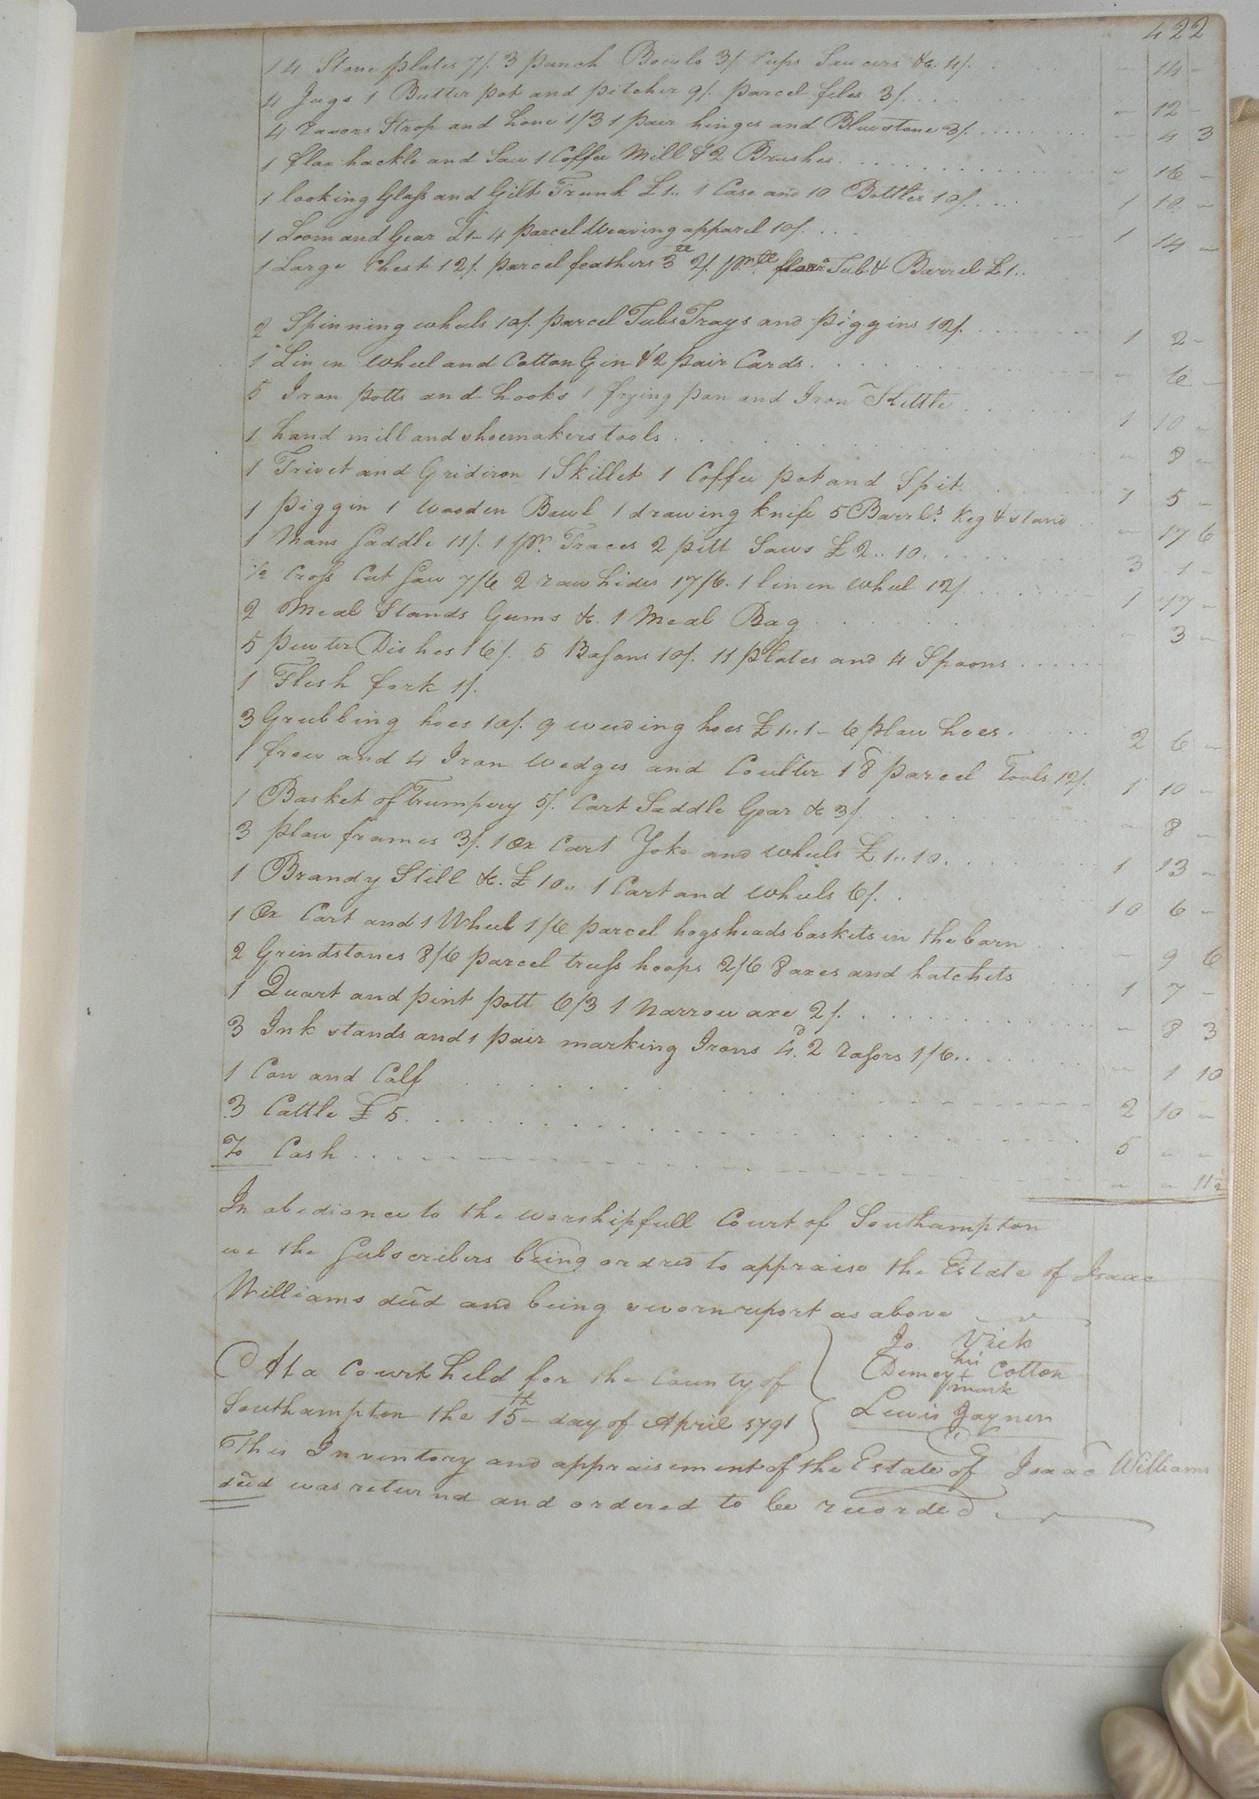 422
14 Stone plates 7/. 3 punch Bowls 3/ Cups Saucers &c. 4/. - 14 -
4 Jugs 1 Butter pot and pitcher 9/. parcel files 3/. - 12 -
4 razors Strop and hone 1/3 1 pair hinges and Bluestone 3/. - 4 3
1 flax hackle and Saw 1 Coffee Mill & 2 Brushes - 16 -
1 looking Glass and Gilt Trunk £1.. 1 Case and 10 Bottles 10/. 1 10 -
1 Loom and Gear £1- 4 parcel Weaving apparel 10/. 1 14 -
1 Large Chest 12/. parcel feathers 3 2/. Tub & Barrel £1..
2 Spinning wheels 10/. parcel Tubs Trays and piggins 12/. 1 2 -
1 Linen Wheel and Cotton Gin & 2 pair Cards - 6 -
5 Iron potts and hooks 1 frying pan and Iron Kettle 1 10 -
1 hand mill and shoemakers tools - 8 -
1 Trivet and Gridiron 1 Skillet 1 Coffee pot and Spit 5 -
1 piggin 1 wooden Bowl 1 drawing knife 5 Barrls. Keg & stand - 17 6
1 Mans Saddle 11/. 1 pr. Traces 2 pitt Saws £2..10. 3 1 -
1/2 Cross Cut Saw 7/6 2 raw hides 17/6. 1 linen wheel 12/ 1 17 -
2 Meal Stands Gums &c. 1 Meal Bag - 3 -
5 pewter Dishes 16/. 5 Basons 10/. 11 plates and 4 Spoons
1 Flesh fork 1/.
3 Grubbing hoes 10/. 9 weeding hoes £1..1- 6 plow hoes. 2 6 -
1 frow and 4 Iron wedges and Coulter 18 parcel Tools 12/. 1 10 -
1 Basket of Trumpery 5/. Cart Saddle Gear &c 3/ - 8 -
3 plow frames 3/. 1 Ox Cart Yoke and wheels £1..10. 1 13 -
1 Brandy Still &c. £10.. 1 Cart and wheels 6/. 10 6 -
1 Ox Cart and 1 Wheel 1/6 parcel hogsheads baskets in the barn - 9 6
2 Grindstones 8/6 parcel truss hoops 2/6 8 axes and hatchets 1 7 -
1 Quart and pint pott 6/3 1 Narrow axe 2/. - 8 3
3 Ink stands and 1 pair marking Irons 4d. 2 rasors 1/6.. - 1 10
1 Cow and Calf 2 10 -
3 Cattle £5. 5 - -
To Cash - - 11 1/2
In obedience to the worshipfull Court of Southampton
we the Subscribers being ordred to appraise the Estate of Isaac
Williams decd and being sworn report as above
Jo Vick
Demcy his + mark Cotton
Lewis Joyner
At a Court held for the County of
Southampton the 15th day of April 1791
This Inventory and appraisement of the Estate of Isaac Williams
decd was returnd and ordered to be recorded